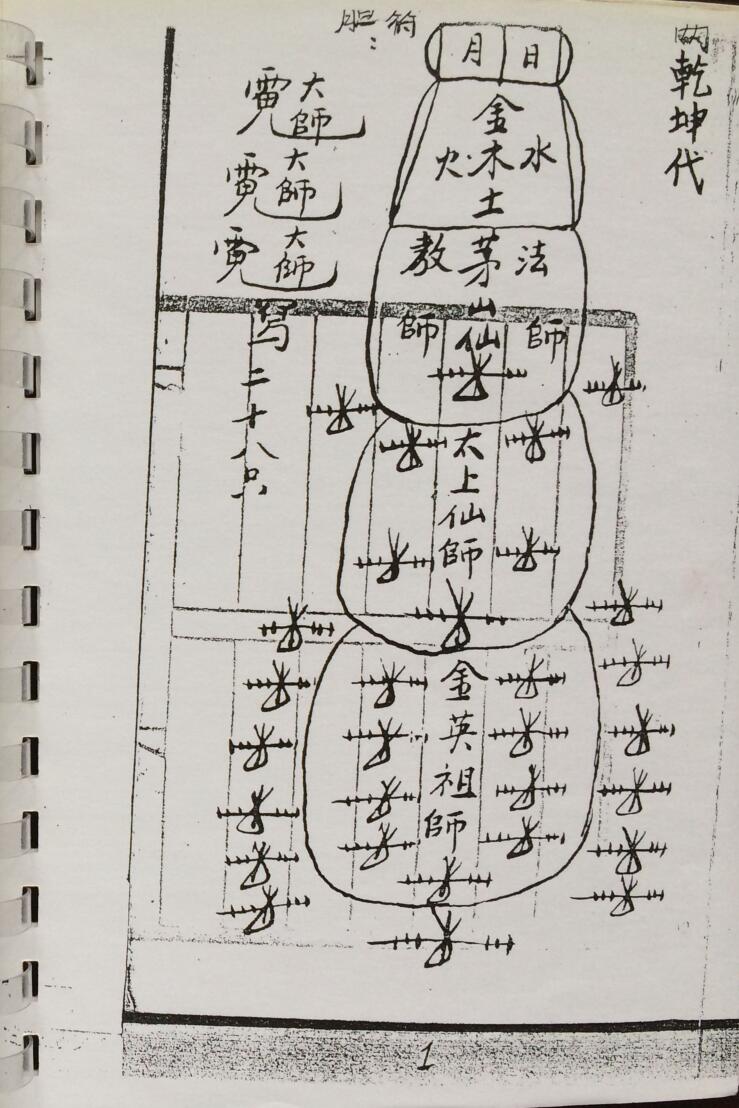 乾坤代
符
月 日
金
火 木 水
土
教 茅 法
山
師 仙 師
太上仙師
金英祖師
大師
大師
大師
写二十八只
1